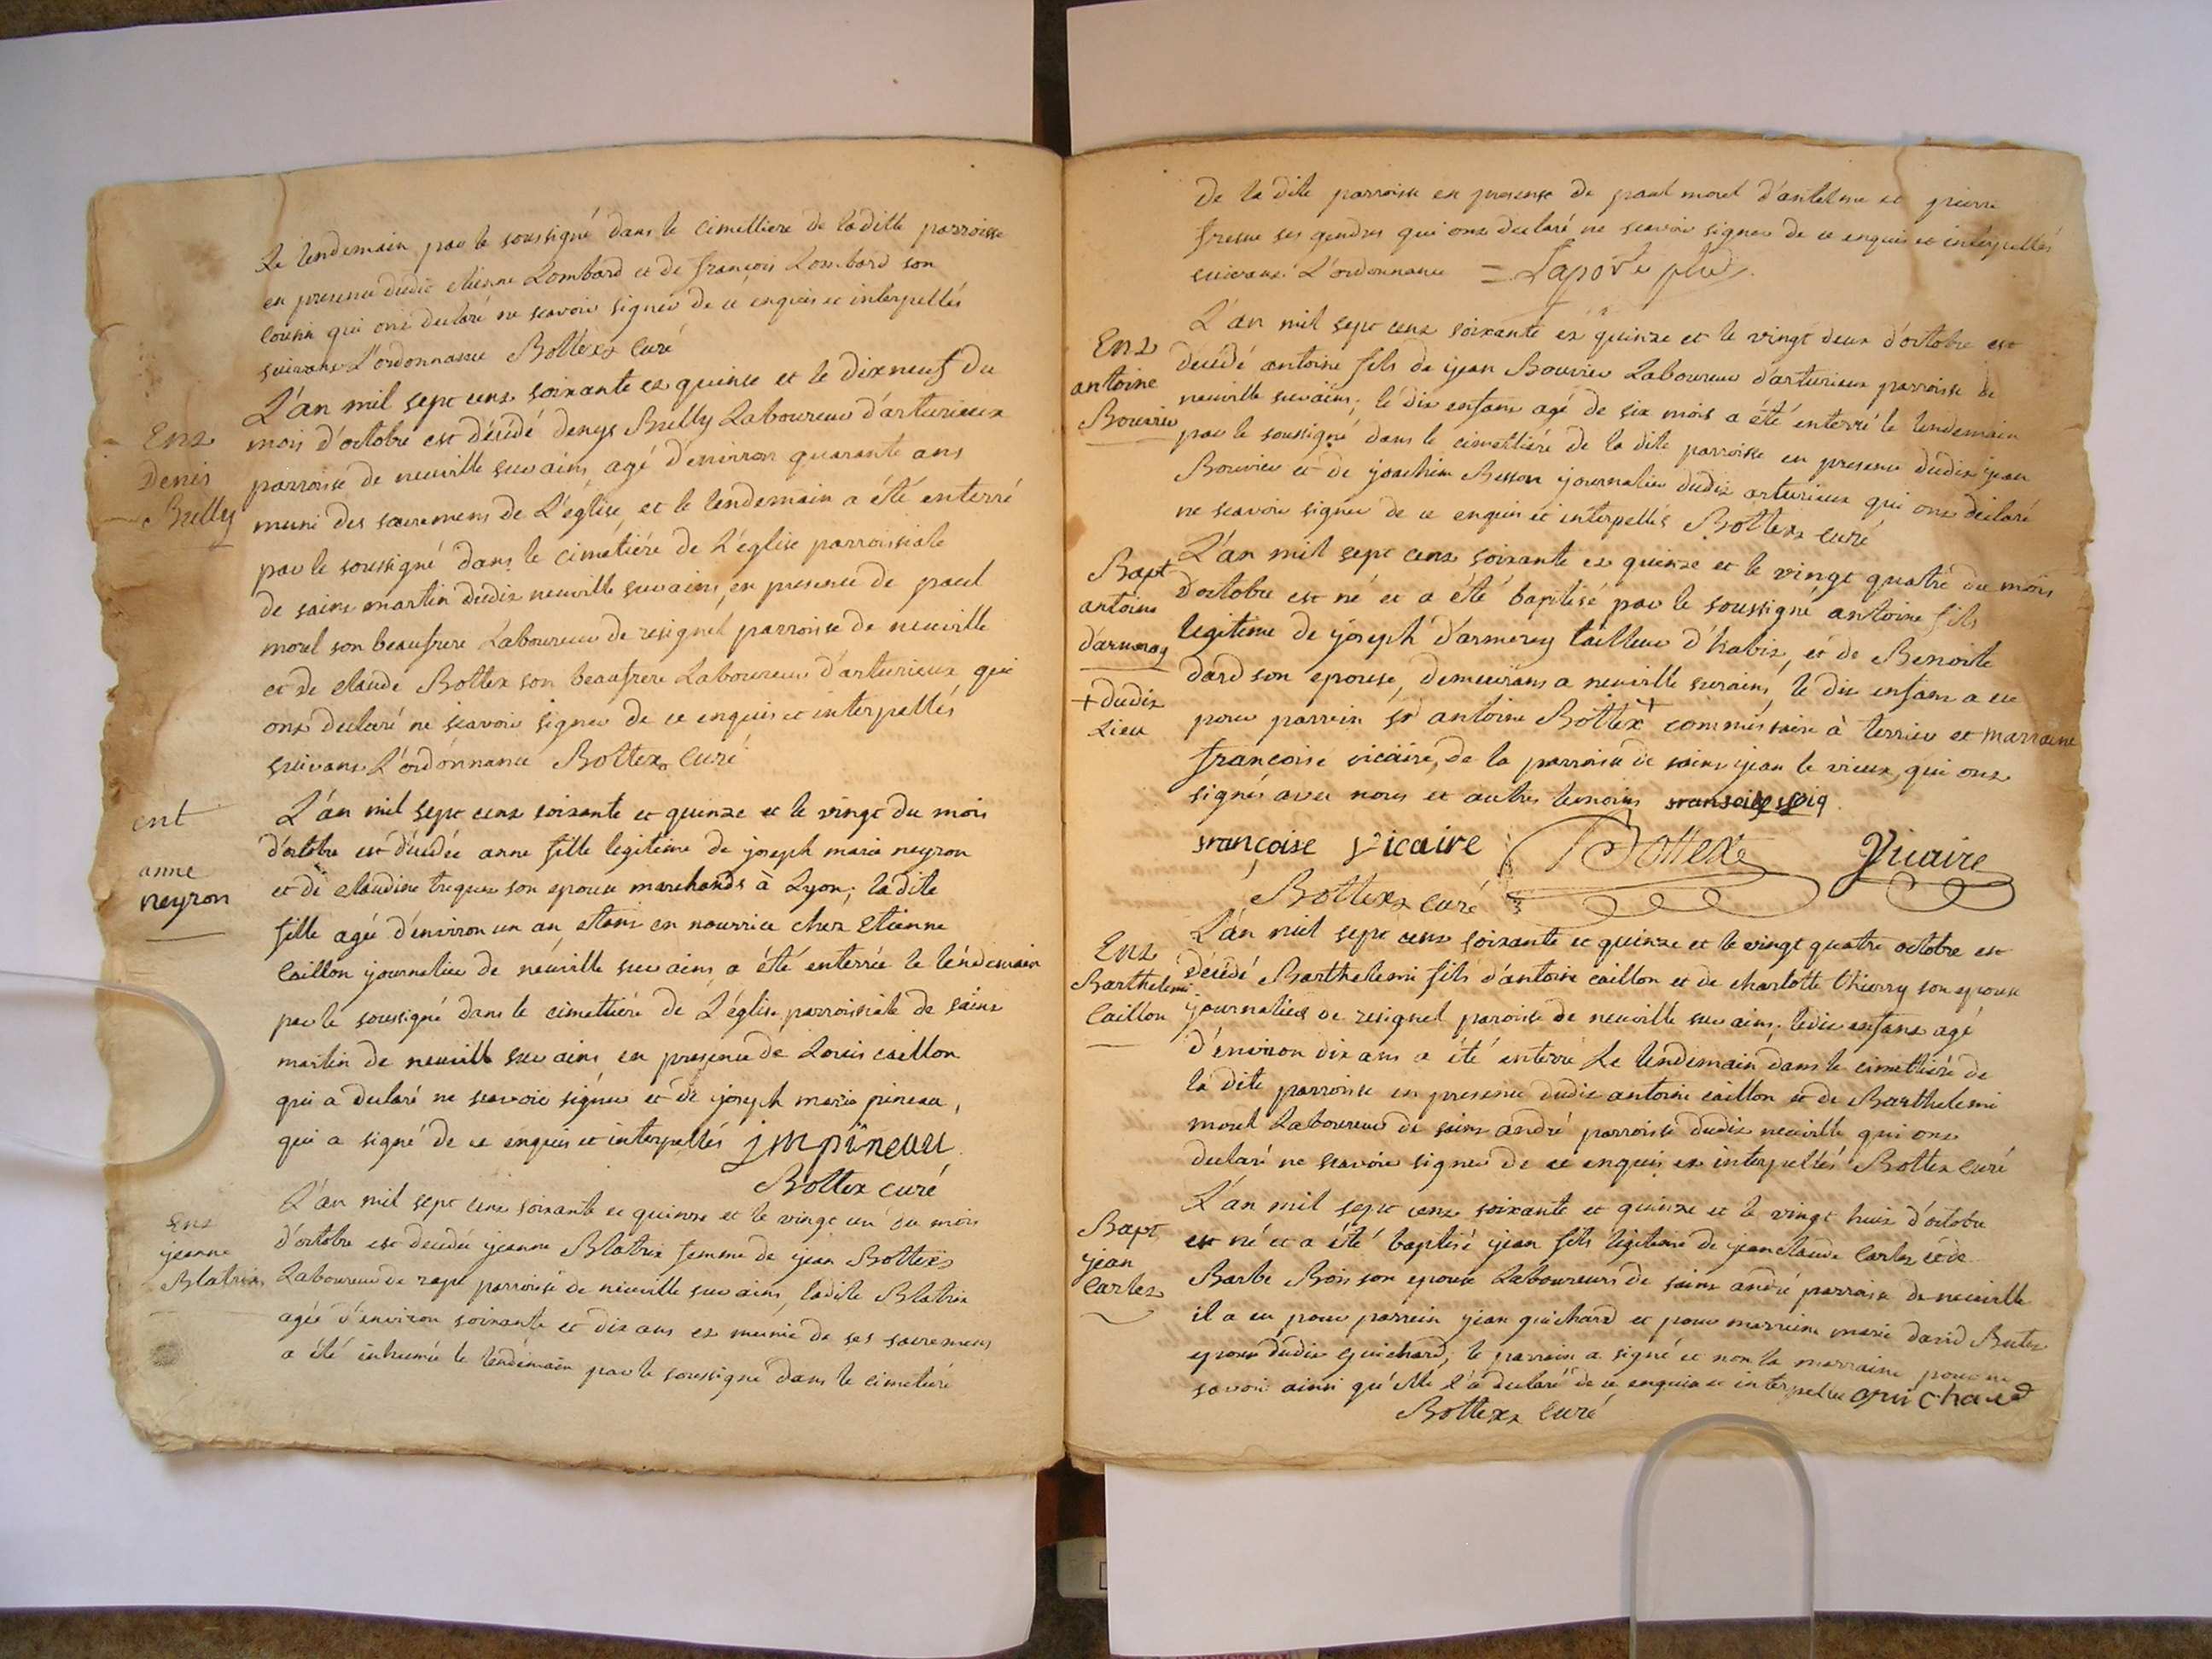 Le lendemain par le soussigné dans le cimettiere de ladille parroisse
en presence dudit etienne Lombard et de françois Lombard son
cousin qui ont declaré ne scavoir signer de ce enquis et interpellés
suivant L'ordonnance Bottex curé
Ent
Denis
Brelly
L'an mil sept cent soixante et quinse et le dix neuf du
mois d'octobre est décédé denys Brelly Laboureur d'arturieux
parroise de neuville sur ains agé d'environ quarante ans
muni des sacremens de L'église, et le lendemain a été enterré
par le soussigné dans le cimetiére de L'église parroissiale
de saint martin dudit neuville sur ains, en presence de paul
morel son beaufrere Laboureur de resignel parroise de neuville
et de claude Bottex son beaufrere Laboureur d'arturieux qui
ont declaré ne scavoir signer de ce enquis et interpellés
suivant L'ordonnance Bottex curé
ent
anne
neyron
L'an mil sept cent soixante et quinze et le vingt du mois
d'octobre est décédée anne fille legiteme de joseph marie neyron
et de claudine son epouse marchands à Lyon; ladite
fille agée d'environ un an etant en nourrice chez etienne
Caillon journalier de neuville sur ains a été enterrée le lendemain
par le soussigné dans le cimettiére de L'église parroissiale de saint
martin de neuville sur ains en presence de Louis caillon
qui a declaré ne scavoir signer et de joseph marie pineau,
qui a signé de ce enquis et interpellés jmpineau
Bottex curé
Ent
jeanne
Blatrix
L'an mil sept cent soixante et quinze et le vingt un du mois
d'octobre est decedée jeanne Blatrix femme de jean Bottex
Laboureur de rape parroise de neuville sur ains, ladite Blatrix
agée d'environ soixante et dix ans et munie de ses sacremens
a été inhumée le lendemain par le soussigné dans le cimetiére
de la dite parroisse en presence de paul morel d'antelme et pierre
fresne ses gendres qui ont declaré ne scavoir signer de ce enquis et interpellés
suivant L'ordonnance = Laporte
Ent
antoine
Bouvier
L'an mil sept cent soixante et quinze et le vingt deux d'octobre est
decédé antoine fils de jean Bouvier Laboureur d'arturieux parroisse de
neuville sur ains; le dit enfant agé de six mois a été enterré le lendemain
par le soussigné dans le cimettiére de la dite parroisse en presence dudit jean
Bouvier et de joachim Besson journalier dudit arturieux qui ont declaré
ne scavoir signer de ce enquis et interpellés Bottex curé
Bapt
antoine
d'armerey
+ dudit
Lieu
L'an mil sept cent soixante et quinze et le vingt quatre du mois
d'octobre est né et a été baptisé par le soussigné antoine fils
legiteme de joseph d'armerey tailleur d'habit, et de Benoite
dard son epouse, demeurans a neuville sur ains, le dit enfant a eu
pour parrein sr antoine Bottex + commissaire à terrier et marraine
françoise vicaire, de la parroise de saint jean le vieux, qui ont
signés avec nous et autres temoins
françoise vicaire Bottex Vicaire
Bottex curé
Ent
Barthelemi
Caillon
L'an mil sept cent soixante et quinze et le vingt quatre octobre est
décédé Barthelemi fils d'antoine caillon et de charlotte thierry son epouse
journaliers de resignel paroise de neuville sur ains; ledit enfant agé
d'environ dix ans a été enterré Le lendemain dans le cimettiére de
la dite parroisse en presence dudit antoine caillon et de Barthelemi
morel Laboureur de saint andré parroisse dudit neuville qui ont
declaré ne scavoir signer de ce enquis et interpellés Bottex curé
Bapt
jean
Carlez
L'an mil sept cent soixante et quinze et le vingt huit d'octobre
est né et a été baptisé jean fils legiteme de jean claude Carlez et de
Barbe Bois son epouse Laboureurs de saint andré parroise de neuville
il a eu pour parrein jean guichard et pour marreine marie david
epouse dudit guichard; le parrein a signé et non la marraine pour ne
savoir ainsi qu'elle l'a declaré de ce enquise et interpellée guichard
Bottex curé